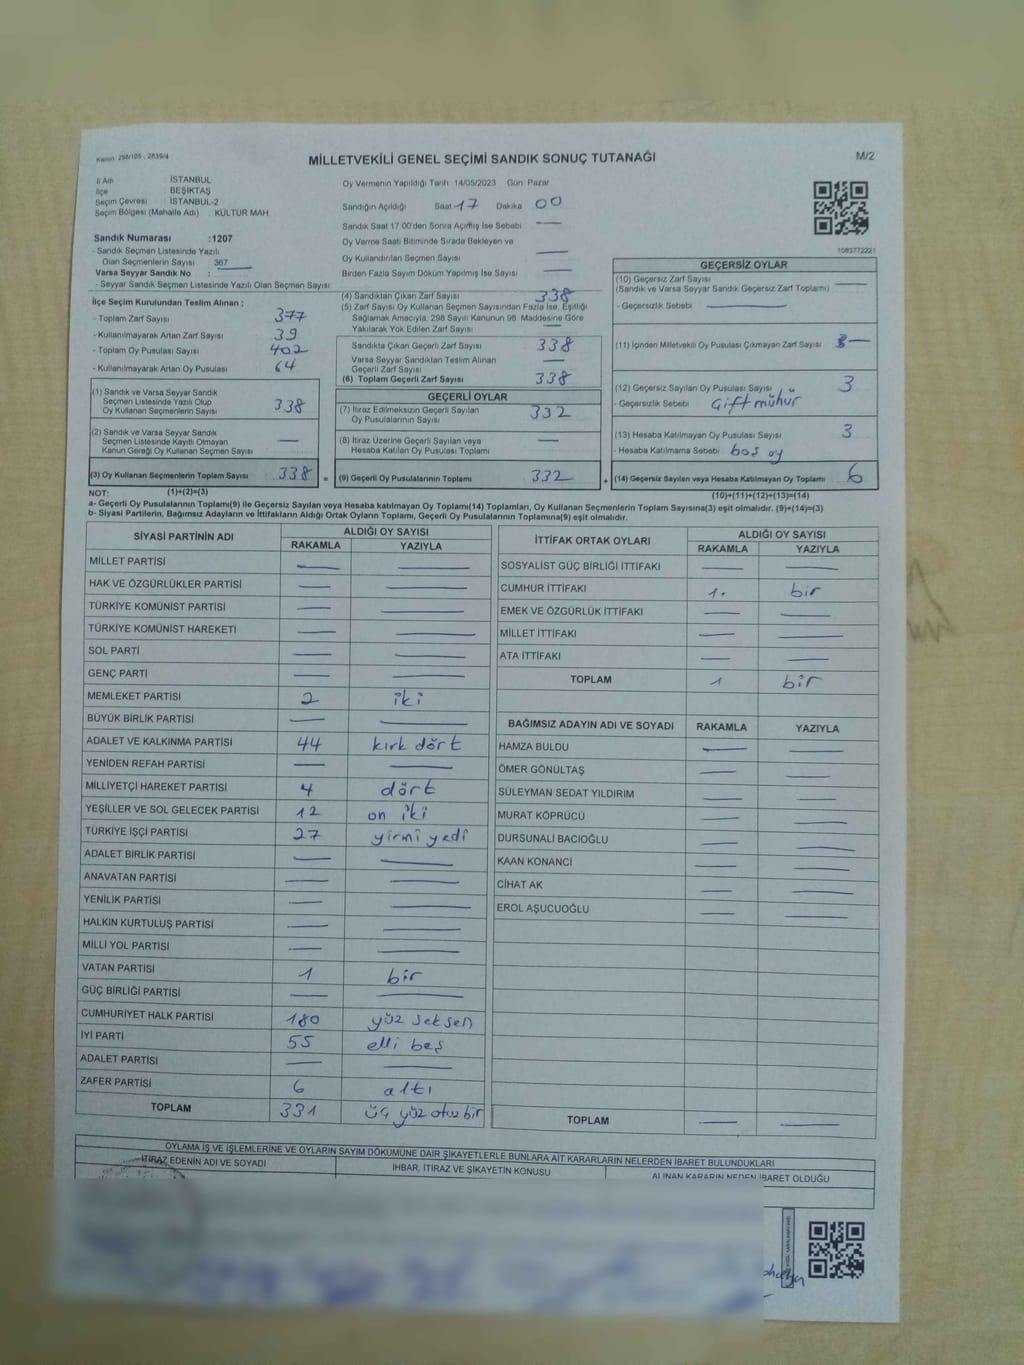 Kanun 298/105 , 2839/4
MİLLETVEKİLİ GENEL SEÇİMİ SANDIK SONUÇ TUTANAĞI
M/2
İl Adı : İSTANBUL
İlçe : BEŞİKTAŞ
Seçim Çevresi : İSTANBUL-2
Seçim Bölgesi (Mahalle Adı) : KÜLTÜR MAH
Sandık Numarası :1207
- Sandık Seçmen Listesinde Yazılı
Olan Seçmenlerin Sayısı : 367
Varsa Seyyar Sandık No :
- Seyyar Sandık Seçmen Listesinde Yazılı Olan Seçmen Sayısı
Oy Vermenin Yapıldığı Tarih 14/05/2023 Gün Pazar
Sandığın Açıldığı Saat 17 Dakika 00
Sandık Saat 17:00'den Sonra Açılmış İse Sebebi —
Oy Verme Saati Bitiminde Sırada Bekleyen ve
Oy Kullandırılan Seçmen Sayısı —
Birden Fazla Sayım Döküm Yapılmış İse Sayısı —
1083772221
İlçe Seçim Kurulundan Teslim Alınan :
- Toplam Zarf Sayısı 377
- Kullanılmayarak Artan Zarf Sayısı 39
- Toplam Oy Pusulası Sayısı 402
- Kullanılmayarak Artan Oy Pusulası 64
(1) Sandık ve Varsa Seyyar Sandık
Seçmen Listesinde Yazılı Olup
Oy Kullanan Seçmenlerin Sayısı 338
(2) Sandık ve Varsa Seyyar Sandık
Seçmen Listesinde Kayıtlı Olmayan
Kanun Gereği Oy Kullanan Seçmen Sayısı —
(3) Oy Kullanan Seçmenlerin Toplam Sayısı 338 =
(4) Sandıktan Çıkan Zarf Sayısı 338
(5) Zarf Sayısı Oy Kullanan Seçmen Sayısından Fazla İse, Eşitliği
Sağlamak Amacıyla, 298 Sayılı Kanunun 98. Maddesine Göre
Yakılarak Yok Edilen Zarf Sayısı —
Sandıkta Çıkan Geçerli Zarf Sayısı 338
Varsa Seyyar Sandıktan Teslim Alınan
Geçerli Zarf Sayısı —
(6) Toplam Geçerli Zarf Sayısı 338
GEÇERLİ OYLAR
(7) İtiraz Edilmeksizin Geçerli Sayılan
Oy Pusulalarının Sayısı 332
(8) İtiraz Üzerine Geçerli Sayılan veya
Hesaba Katılan Oy Pusulası Toplamı —
(9) Geçerli Oy Pusulalarının Toplamı 332 +
GEÇERSİZ OYLAR
(10) Geçersiz Zarf Sayısı
(Sandık ve Varsa Seyyar Sandık Geçersiz Zarf Toplamı) —
- Geçersizlik Sebebi : —
(11) İçinden Milletvekili Oy Pusulası Çıkmayan Zarf Sayısı —
(12) Geçersiz Sayılan Oy Pusulası Sayısı 3
- Geçersizlik Sebebi : Çift mühür
(13) Hesaba Katılmayan Oy Pusulası Sayısı 3
- Hesaba Katılmama Sebebi : boş oy
(14) Geçersiz Sayılan veya Hesaba Katılmayan Oy Toplamı 6
NOT: (1)+(2)=(3)
(10)+(11)+(12)+(13)=(14)
a- Geçerli Oy Pusulalarının Toplamı(9) ile Geçersiz Sayılan veya Hesaba katılmayan Oy Toplamı(14) Toplamları, Oy Kullanan Seçmenlerin Toplam Sayısına(3) eşit olmalıdır. (9)+(14)=(3)
b- Siyasi Partilerin, Bağımsız Adayların ve İttifakların Aldığı Ortak Oyların Toplamı, Geçerli Oy Pusulalarının Toplamına(9) eşit olmalıdır.
SİYASİ PARTİNİN ADI ALDIĞI OY SAYISI
RAKAMLA YAZIYLA
MİLLET PARTİSİ — —
HAK VE ÖZGÜRLÜKLER PARTİSİ — —
TÜRKİYE KOMÜNİST PARTİSİ — —
TÜRKİYE KOMÜNİST HAREKETİ — —
SOL PARTİ — —
GENÇ PARTİ — —
MEMLEKET PARTİSİ 2 iki
BÜYÜK BİRLİK PARTİSİ — —
ADALET VE KALKINMA PARTİSİ 44 kırk dört
YENİDEN REFAH PARTİSİ — —
MİLLİYETÇİ HAREKET PARTİSİ 4 dört
YEŞİLLER VE SOL GELECEK PARTİSİ 12 on iki
TÜRKİYE İŞÇİ PARTİSİ 27 yirmi yedi
ADALET BİRLİK PARTİSİ — —
ANAVATAN PARTİSİ — —
YENİLİK PARTİSİ — —
HALKIN KURTULUŞ PARTİSİ — —
MİLLİ YOL PARTİSİ — —
VATAN PARTİSİ 1 bir
GÜÇ BİRLİĞİ PARTİSİ — —
CUMHURİYET HALK PARTİSİ 180 yüz seksen
İYİ PARTİ 55 elli beş
ADALET PARTİSİ — —
ZAFER PARTİSİ 6 altı
TOPLAM 331 üç yüz otuz bir
İTTİFAK ORTAK OYLARI ALDIĞI OY SAYISI
RAKAMLA YAZIYLA
SOSYALİST GÜÇ BİRLİĞİ İTTİFAKI — —
CUMHUR İTTİFAKI 1. bir
EMEK VE ÖZGÜRLÜK İTTİFAKI — —
MİLLET İTTİFAKI — —
ATA İTTİFAKI — —
TOPLAM 1 bir
BAĞIMSIZ ADAYIN ADI VE SOYADI RAKAMLA YAZIYLA
HAMZA BULDU — —
ÖMER GÖNÜLTAŞ — —
SÜLEYMAN SEDAT YILDIRIM — —
MURAT KÖPRÜCÜ — —
DURSUNALİ BACIOĞLU — —
KAAN KONANCİ — —
CİHAT AK — —
EROL AŞUCUOĞLU — —
TOPLAM — —
OYLAMA İŞ VE İŞLEMLERİNE VE OYLARIN SAYIM DÖKÜMÜNE DAİR ŞİKAYETLERLE BUNLARA AİT KARARLARIN NELERDEN İBARET BULUNDUKLARI
İTİRAZ EDENİN ADI VE SOYADI
İHBAR, İTİRAZ VE ŞİKAYETİN KONUSU
ALINAN KARARIN NEDEN İBARET OLDUĞU